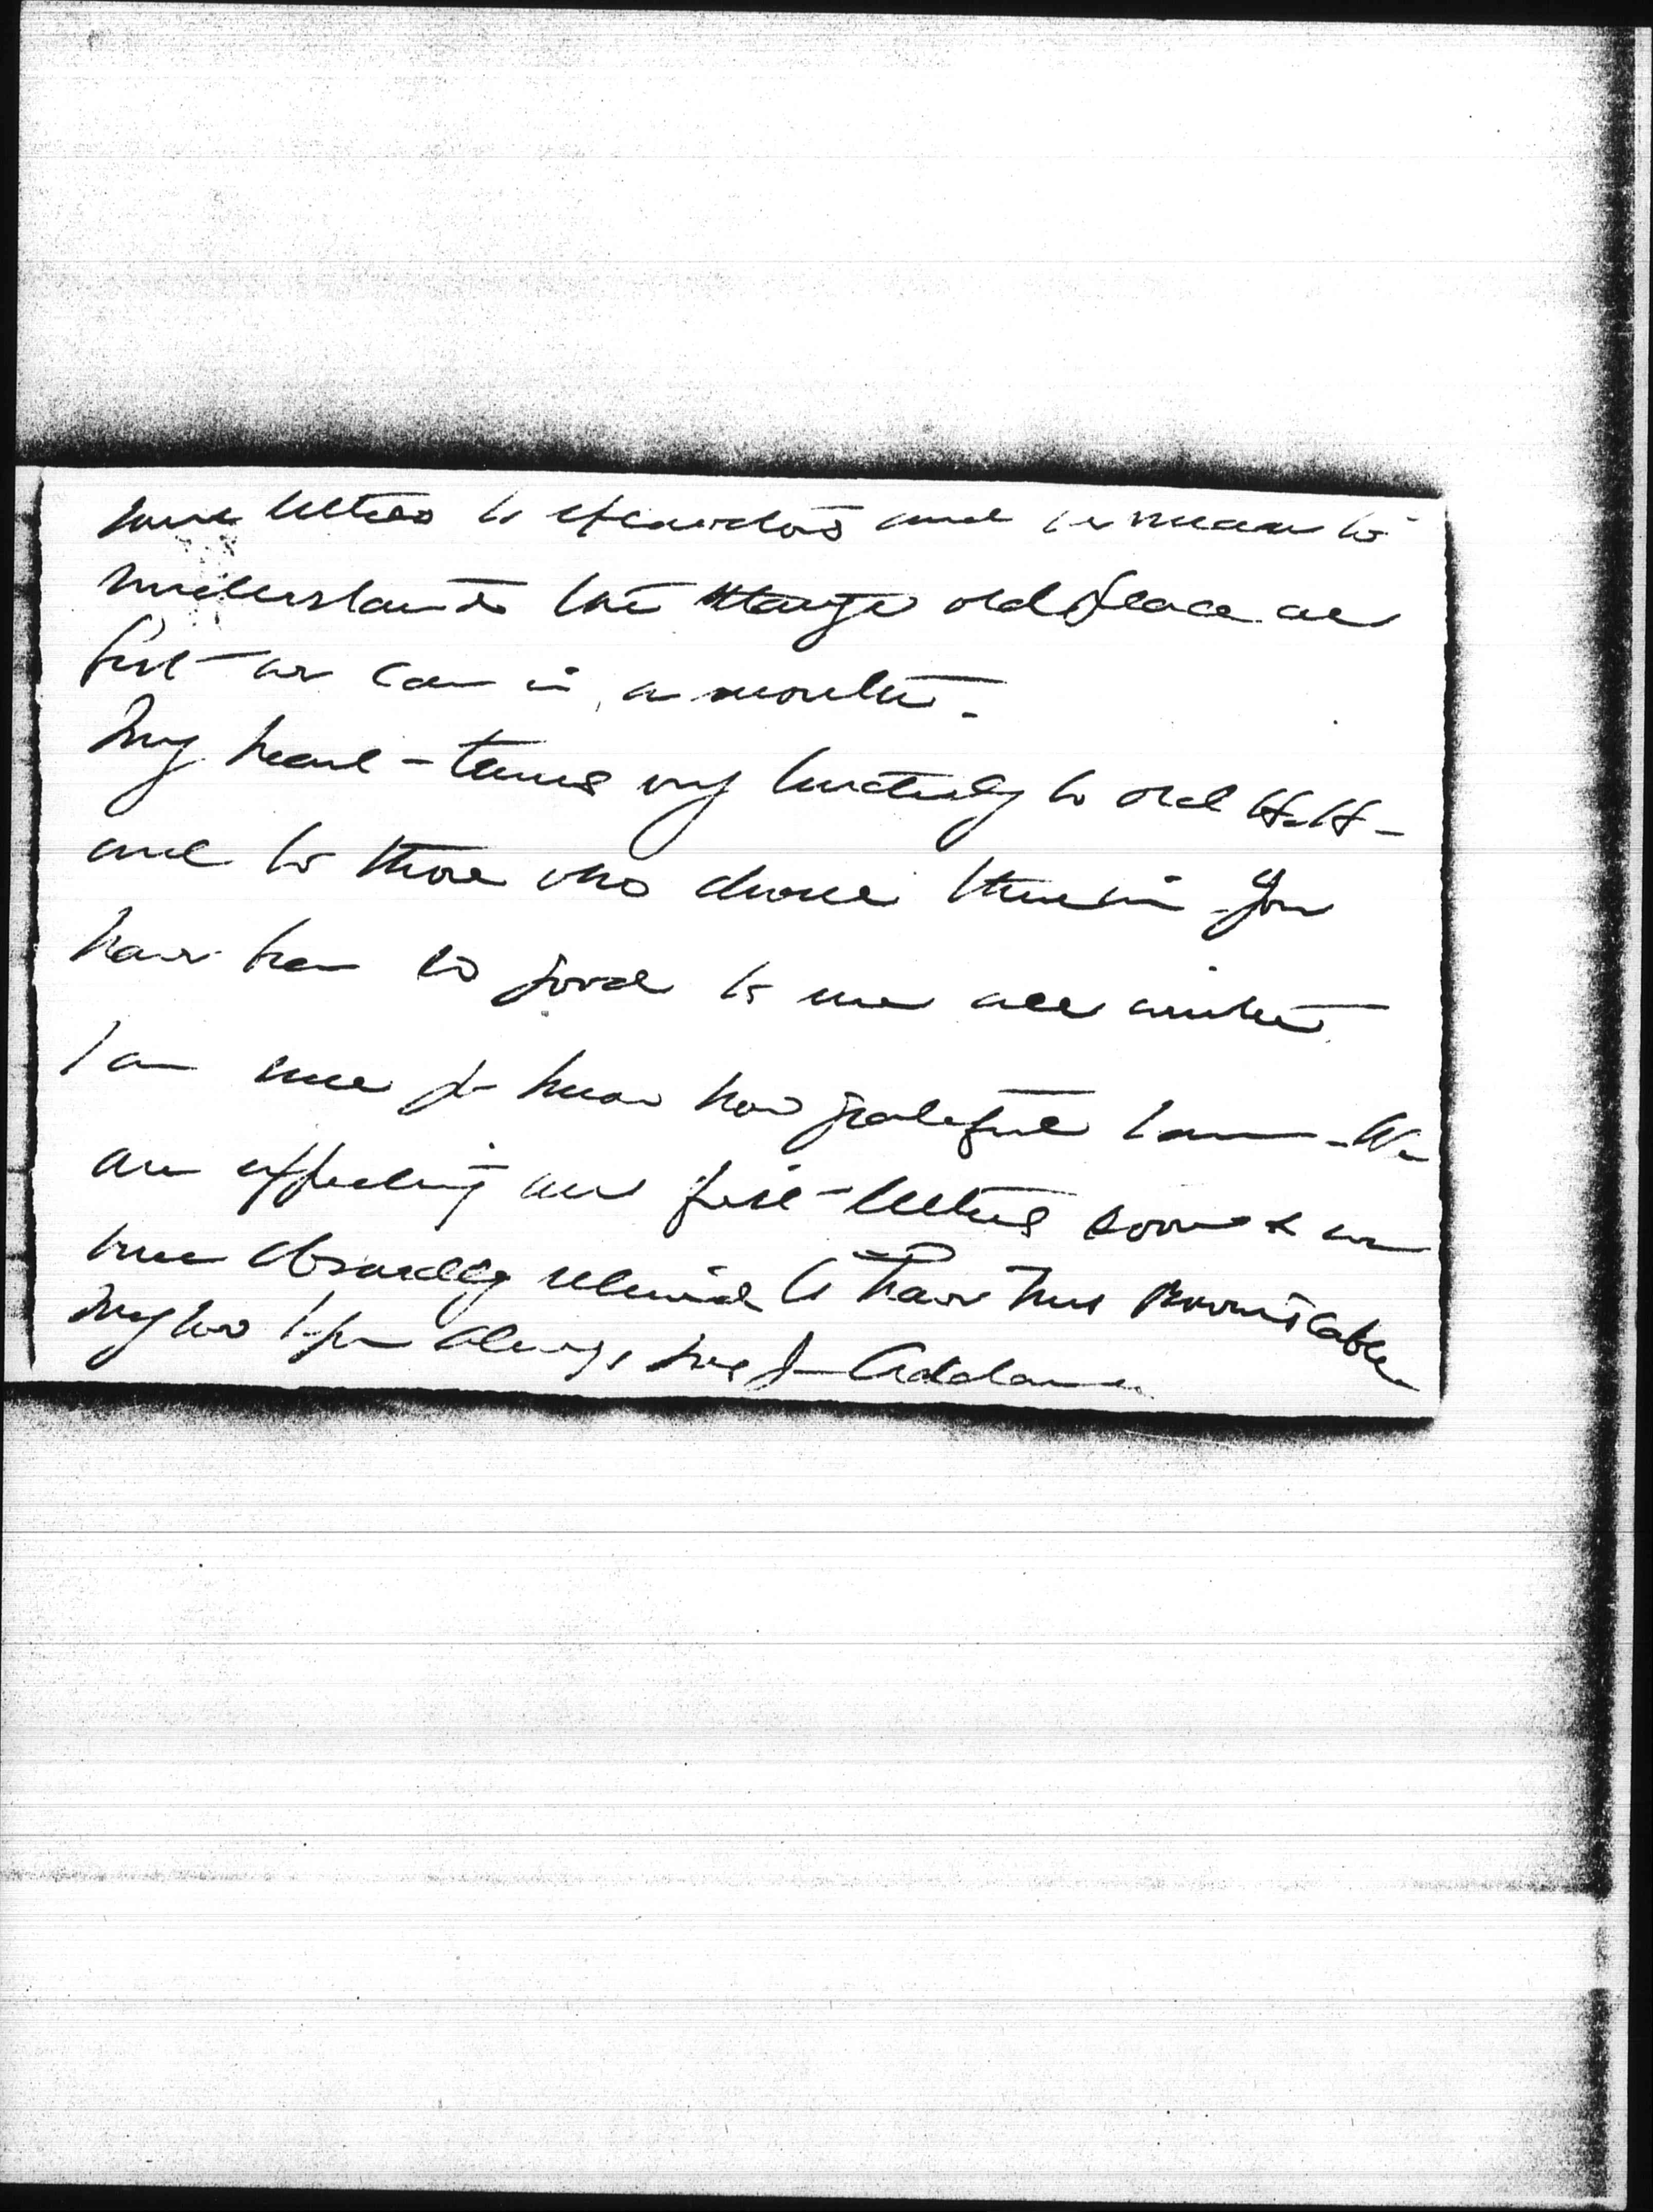 some letters to Egyptians and we mean to
understand the strange old place as
best we can in a month.
My heart turns very constantly to old H.H-
and to those who dwell therein. You
have been so good to me all winter
I am sure you know how grateful I am - We
are expecting our first letters soon & we
were absurdly relieved to have Mrs Bowen's cable
My love to you always yrs J- Addams